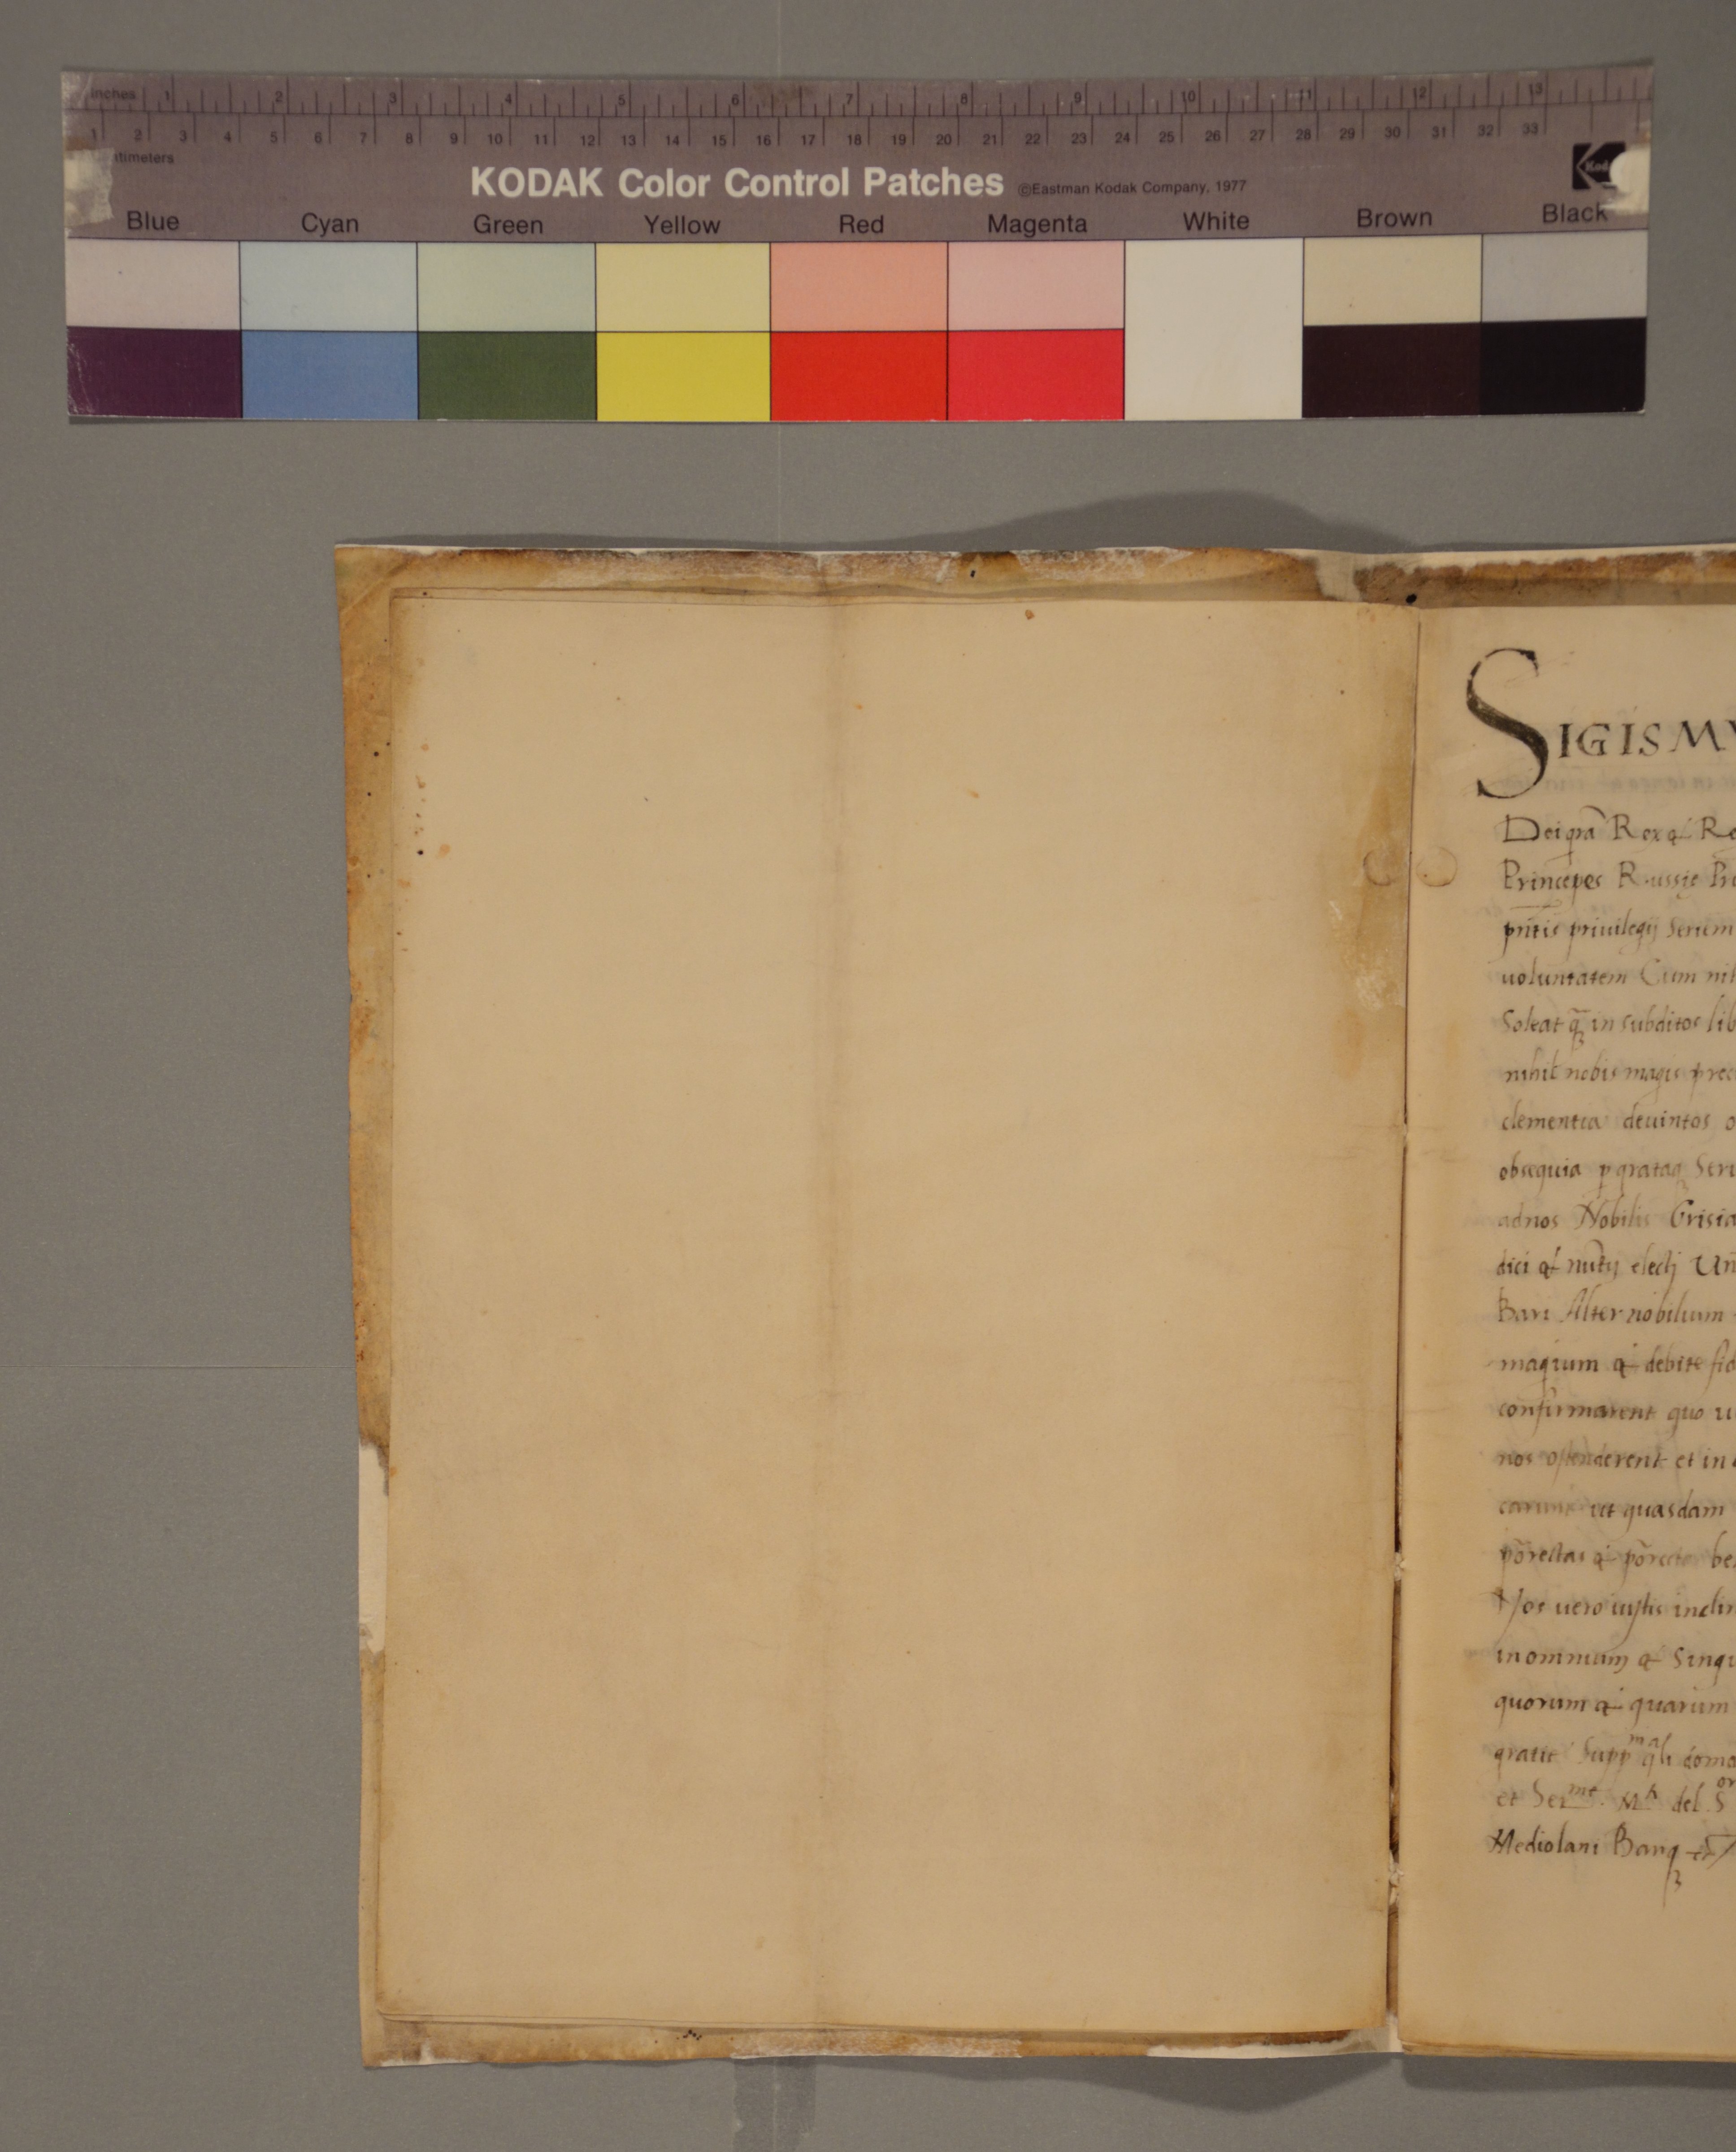 inches 1 2 3 4 5 6 7 8 9 10 11 12 13
1 2 3 4 5 6 7 8 9 10 11 12 13 14 15 16 17 18 19 20 21 22 23 24 25 26 27 28 29 30 31 32 33
timeters
KODAK Color Control Patches ©Eastman Kodak Company, 1977
Blue Cyan Green Yellow Red Magenta White Brown Black
SIGISMV
Dei gra Rex & Re
Princepes Russie Pr
pritis priuilegij Seriem
uoluntatem Cum nih
Soleat in subditos lib
nihil nobis magis prec
clementia deuintos o
obsequia Seru
ad nos Nobilis Grisia
dici & electi Un
Bari Alter nobilium
magium & debite fid
confirmarent quo u
nos ostenderent et in
ut quasdam
porectas & be
Nos uero iustis inclin
in omnium & Singu
quorum & quarum
Supp
et Ser del S
Mediolani Banq